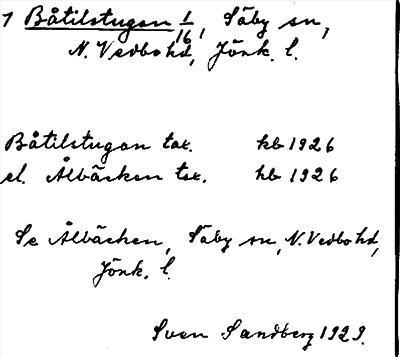 1 Båtilstugan 1/16, Säby sn,
N. Vedbo hd, Jönk. l.
Båtilstugan tax. hb 1926
el. Ålbäcken tax. hb 1926
Se Ålbäcken, Säby sn, N. Vedbo hd,
Jönk. l.
Sven Sandberg 1929.